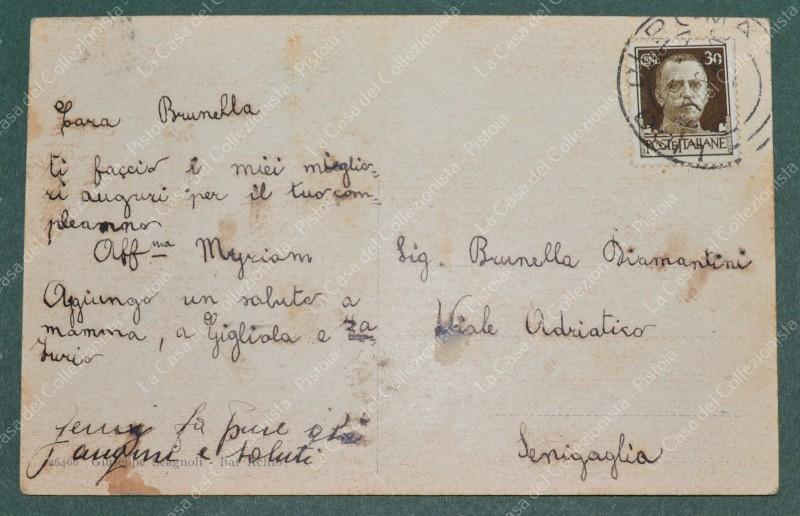 Cara Brunella
ti faccio i miei miglio-
ri auguri per il tuo com-
pleanno
Aff.ma Myriam
Agiungo un saluto a
mamma, a Gigliola e
fa pure gli
auguri e saluti
26406 Giuseppe Scagnoli - Bar
Sig. Brunella Diamantini
Viale Adriatico
Senigaglia
CENT. 30
POSTE ITALIANE
ROMA
La Casa del Collezionista - Pistoia